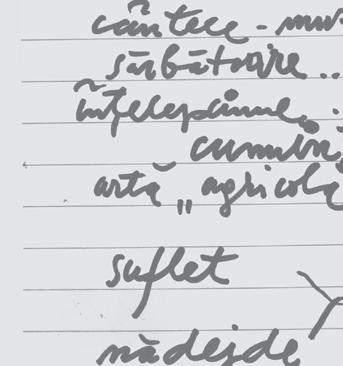 cântece - mu
sărbătoare ..
înțelepciune, .
cumin
artă „agricolă
suflet
nădejde